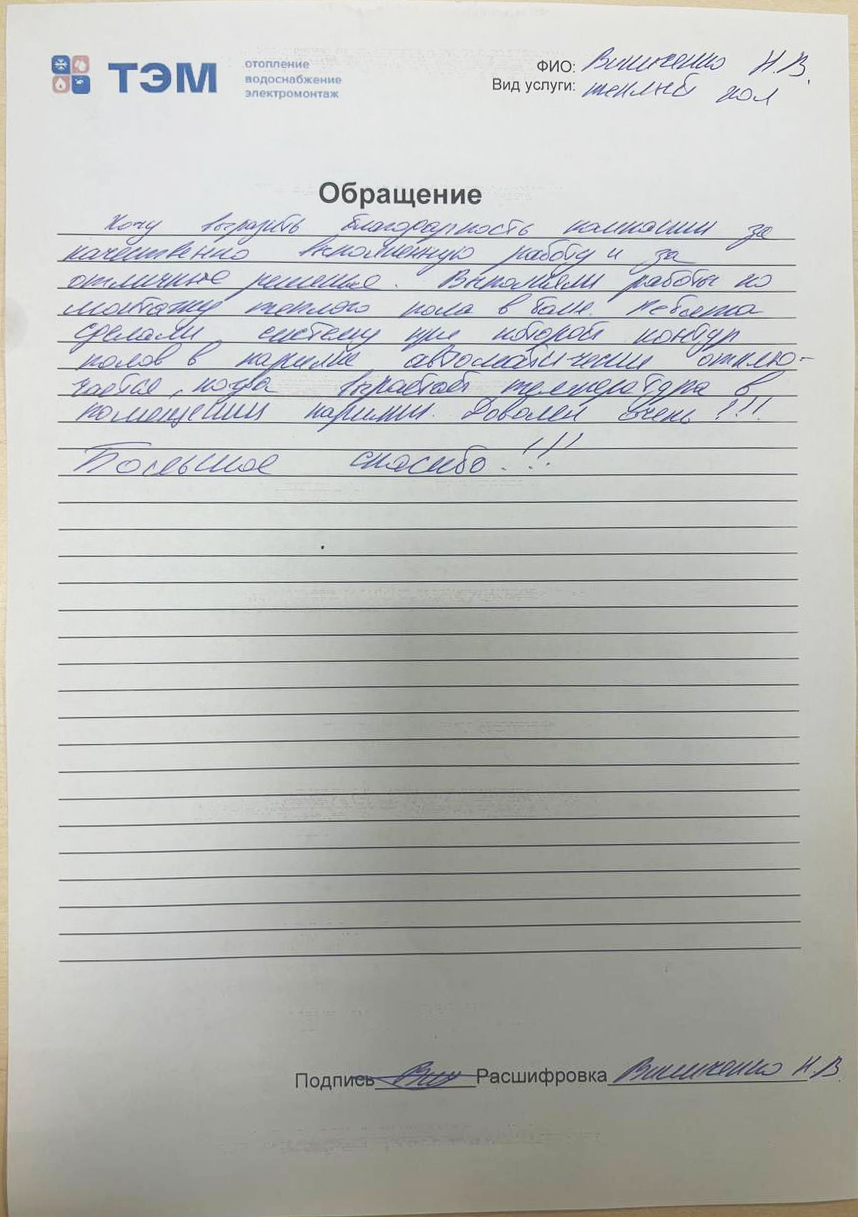 ТЭМ
отопление
водоснабжение
электромонтаж
ФИО: Винниченко Н.В.
Вид услуги: теплый пол
Обращение
Хочу выразить благодарность компании за
качественно выполненную работу и за
отличные решения. Выполняли работы по
монтажу теплого пола в бане. Ребята
сделали систему при которой контур
полов в парилке автоматически отклю-
чается, когда вырастает температура в
помещении парилки. Доволен очень!!!
Большое спасибо!!!
Подпись Расшифровка Винниченко Н.В.